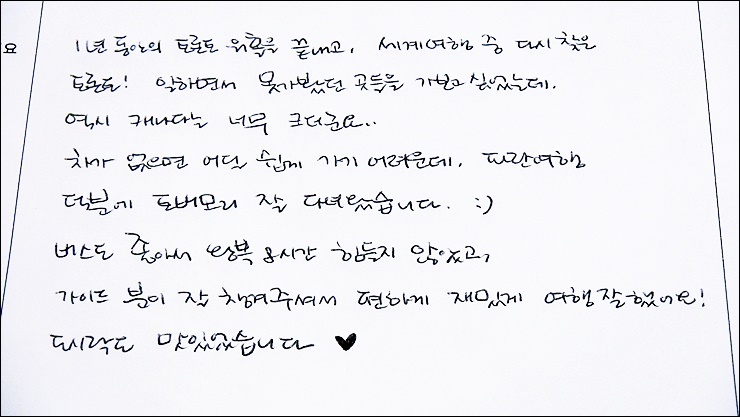 요
1년 동안의 토론토 워홀을 끝내고, 세계여행 중 다시 찾은
토론토! 일하면서 못가봤던 곳들을 가보고 싶었는데.
역시 캐나다는 너무 크더군요..
차가 없으면 어딜 쉽게 가기 어려운데, 파란여행
덕분에 토버모리 잘 다녀왔습니다. :)
버스도 좋아서 왕복 8시간 힘들지 않았고,
가이드 분이 잘 챙겨주셔서 편하게 재밌게 여행 잘했어요!
도시락도 맛있었습니다 ♥